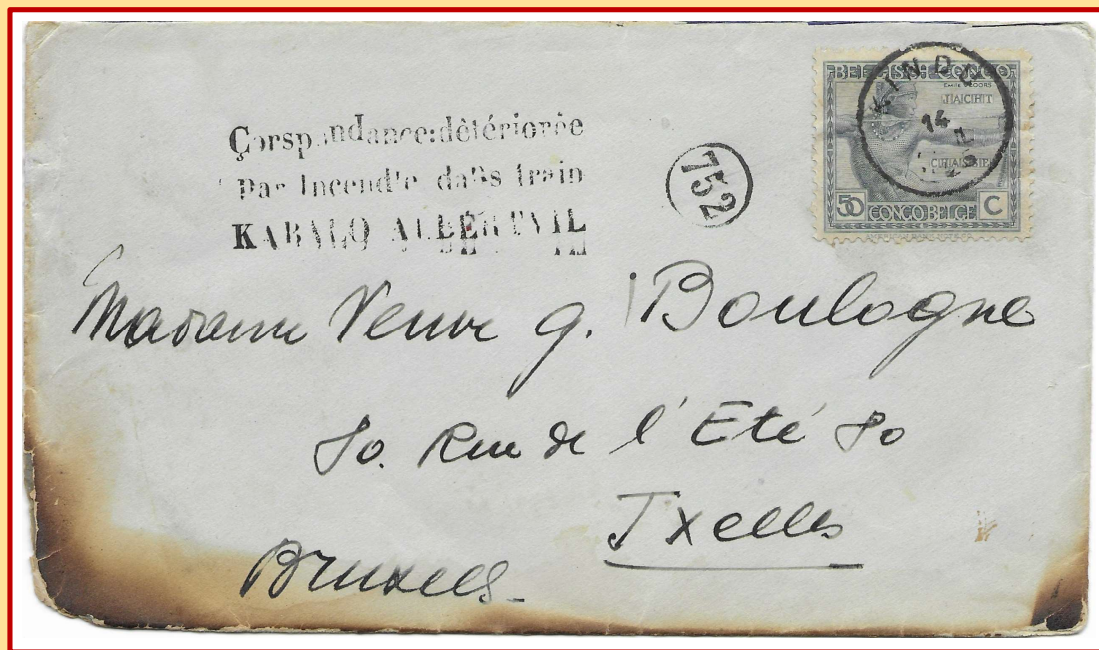 Çorspondance:détériorée
Par Incendie dans train
KABALO ALBERTVIL
752
BELGISCH CONGO
KINDU
14
50 CONGO BELGE C
Madame Veuve G. Boulogne
80. Rue de l'Eté 80
Ixelles
Bruxelles